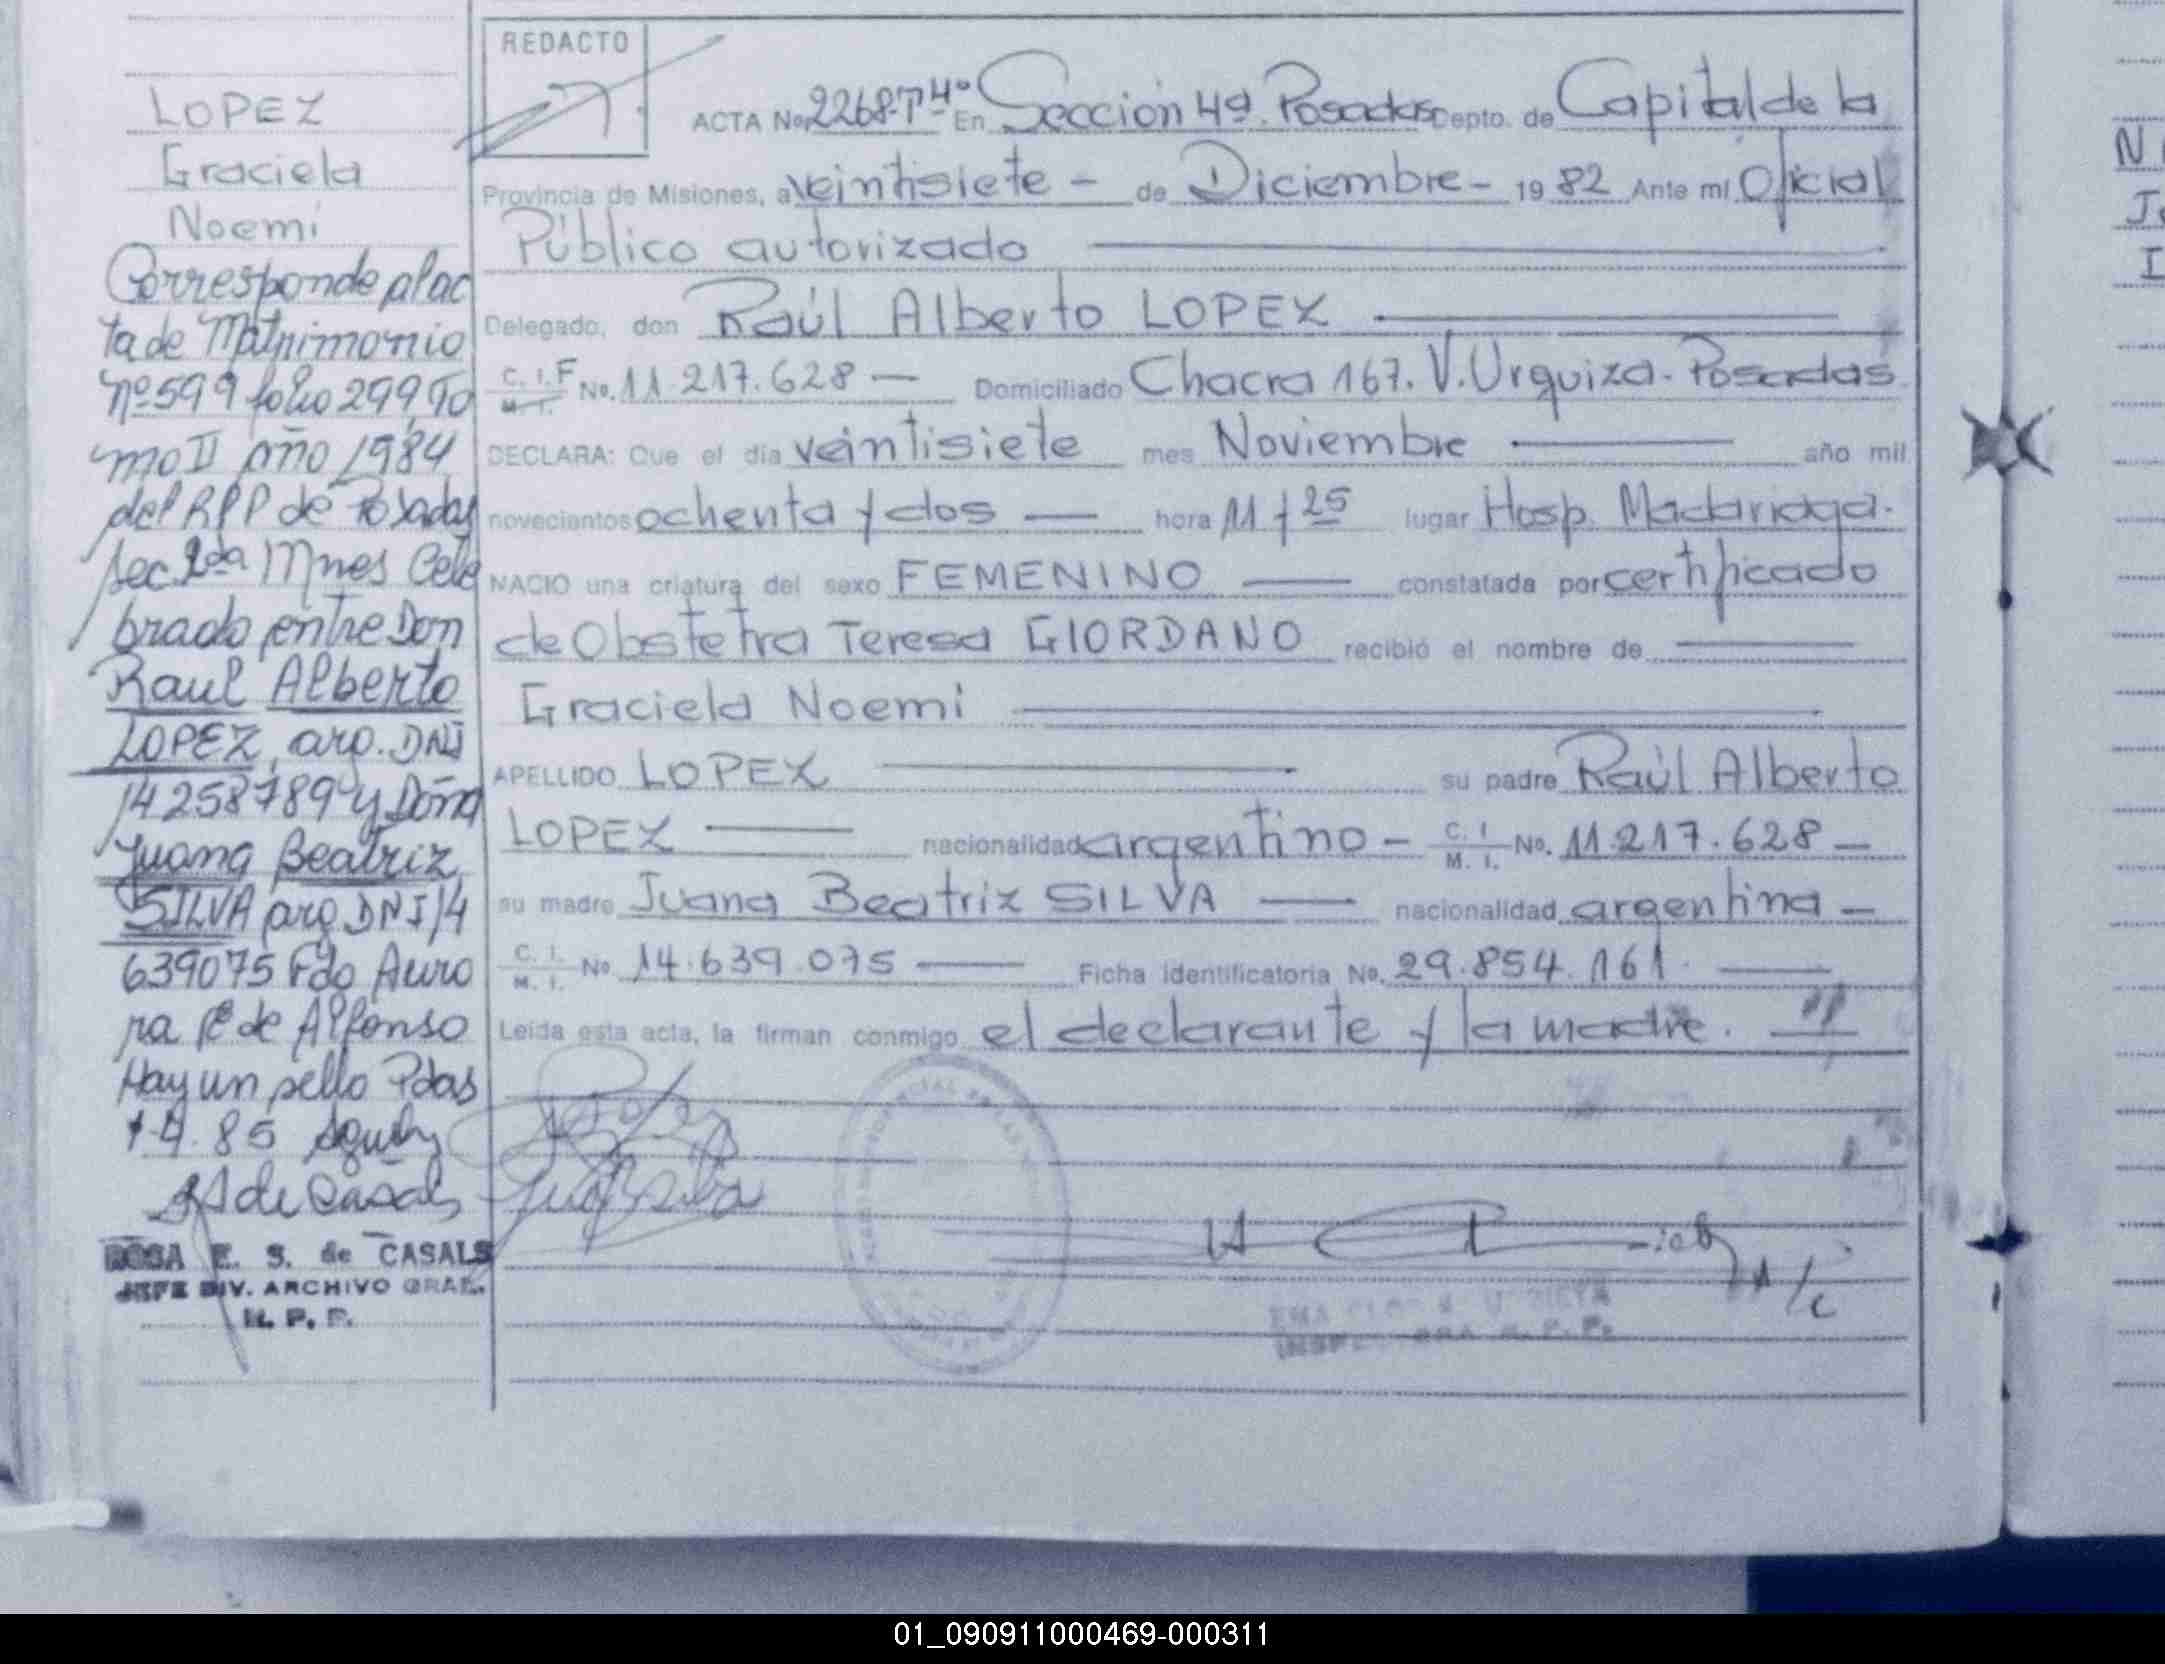 LOPEZ
Graciela
Noemi
Corresponde al ac
ta de Matrimonio
Nº 599 folio 299 To
mo II Año 1984
del RPP de Posadas
sec 2da Mnes Cele
brado entre Don
Raul Alberto
LOPEZ, arg. DNI
14258789 y Doña
Juana Beatriz
SILVA arg. DNI 14
639075 Fdo Auro
ra R de Alfonso
Hay un sello Pdas
1-4-85
S de Casals
ROSA E. S. de CASALS
JEFE DIV. ARCHIVO GRAL.
R. P. P.
REDACTO
ACTA No. 2268-Tº4º En Sección 4ª. Posadas Depto. de Capital de la
Provincia de Misiones, a veintisiete - de Diciembre - 19 82 Ante mí Oficial
Público autorizado
Delegado, don Raúl Alberto LOPEZ
C. I. F No. 11.217.628 — Domiciliado Chacra 167. V. Urquiza. Posadas
M. I.
DECLARA: Que el día veintisiete mes Noviembre año mil
novecientos ochenta y dos — hora 11 y 25 lugar Hosp. Madariaga.
NACIO una criatura del sexo FEMENINO — constatada por certificado
de Obstetra Teresa GIORDANO recibió el nombre de
Graciela Noemi
APELLIDO LOPEZ su padre Raúl Alberto
LOPEZ — nacionalidad argentino - C. I. M. I. No. 11.217.628 —
su madre Juana Beatriz SILVA — nacionalidad argentina —
C. I. M. I. No. 14.639.075 — Ficha identificatoria No. 29.854.161
Leida esta acta, la firman conmigo el declarante y la madre.
R. P. P.
N
I
01_090911000469-000311